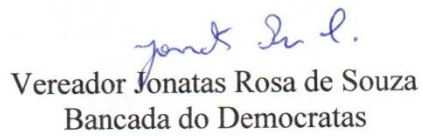 Vereador Jonatas Rosa de Souza
Bancada do Democratas